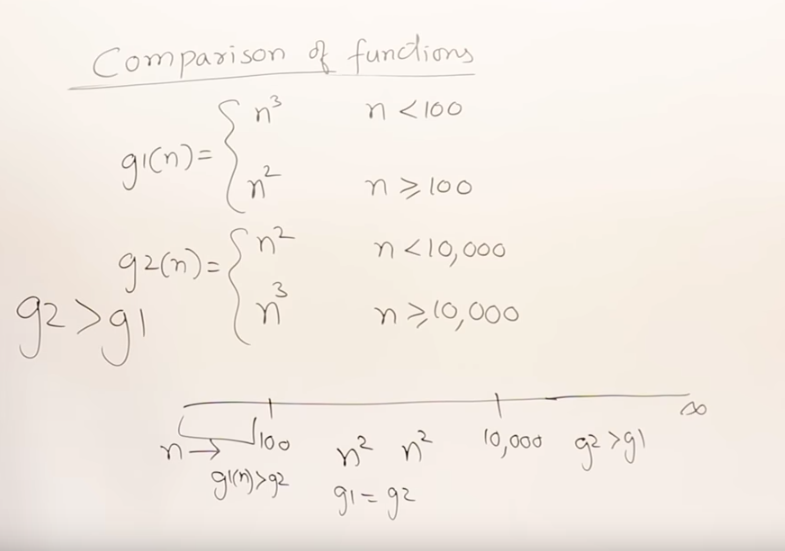 Comparison of functions
g1(n) = { n³ n < 100
n² n ≥ 100
g2(n) = { n² n < 10,000
n³ n ≥ 10,000
g2 > g1
100 10,000 ∞
n → n² n² g2 > g1
g1(n) > g2 g1 = g2